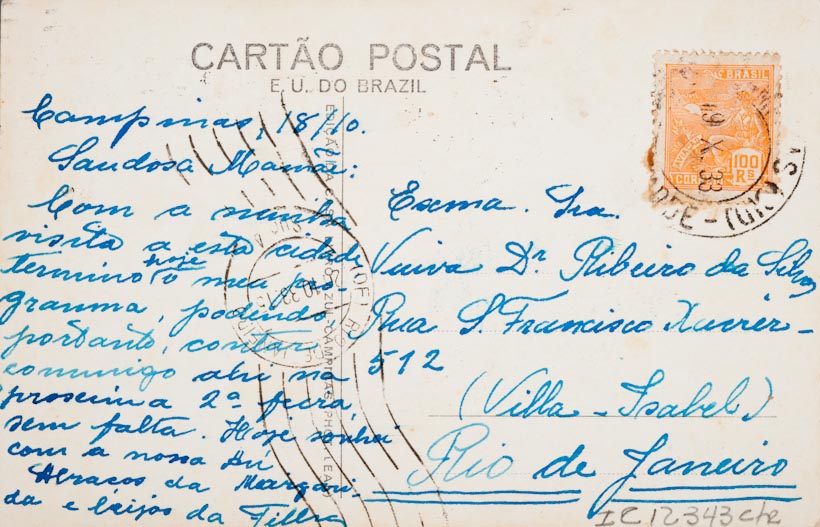 CARTÃO POSTAL
E. U. DO BRAZIL
BRASIL
100
Rs
CORREIO
19 X. 33
Campinas, 18/10.
Saudosa Mamãe:
Com a minha
visita a esta cidade
termino hoje o meu pro-
gramma, podendo
portanto, contar
commigo ahi na
proxima 2ª feira,
sem falta. Hoje sonhei
com a nossa
Abraços da Margari-
da e beijos da Filha
Exma. Sra.
Viuva Dr. Ribeiro da Silva
Rua S. Francisco Xavier-
512
(Villa-Isabel)
Rio de Janeiro
IC 12343